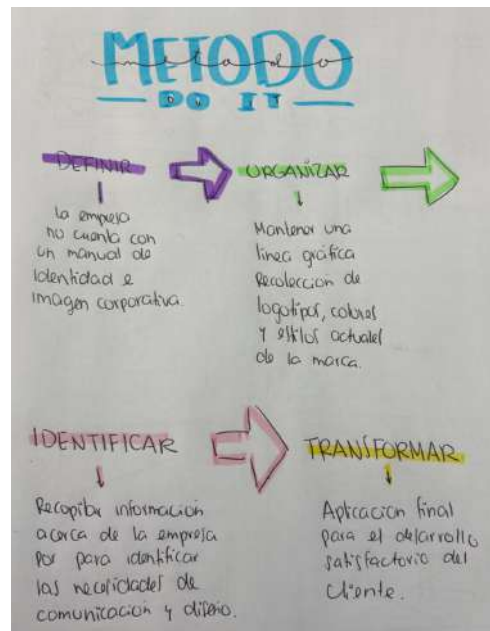 METODO
metodo
DO IT
DEFINIR
La empresa
no cuenta con
un manual de
identidad e
imagen corporativa.
ORGANIZAR
Mantener una
linea gráfica
Recoleccion de
logotipos, colores
y estilos actuales
de la marca.
IDENTIFICAR
Recopilar informacion
acerca de la empresa
por para identificar
las necesidades de
comunicacion y diseño.
TRANSFORMAR
Aplicacion final
para el desarrollo
satisfactorio del
cliente.